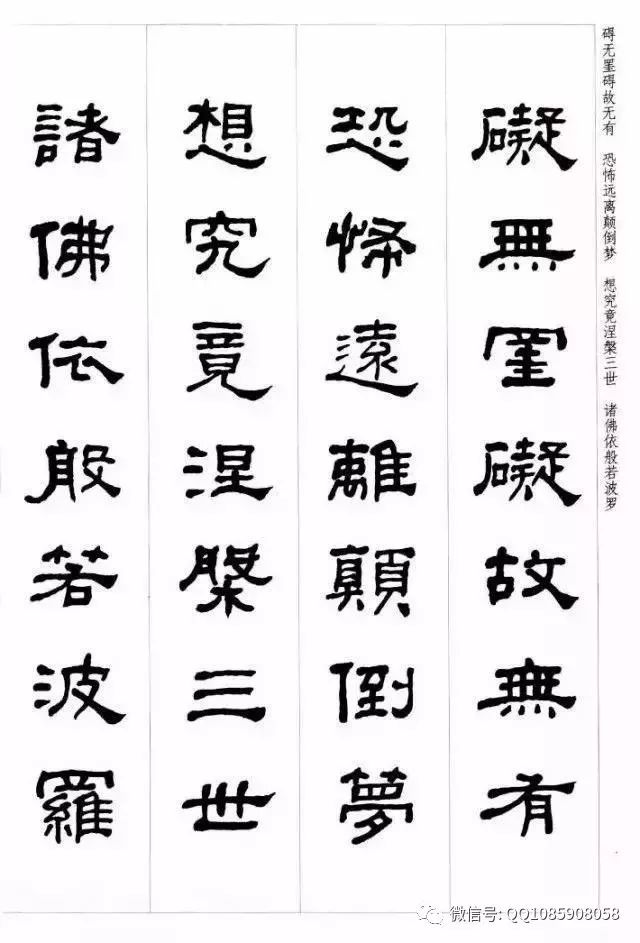 碍无罣碍故无有 恐怖远离颠倒梦 想究竟涅槃三世 诸佛依般若波罗
礙無罣礙故無有
恐怖遠離顛倒夢
想究竟涅槃三世
諸佛依般若波羅
微信号: QQ1085908058